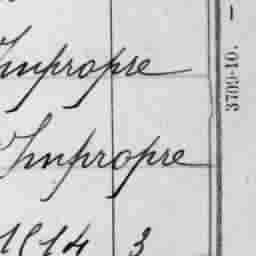 Impropre
Impropre
1914 3
3709-10. —